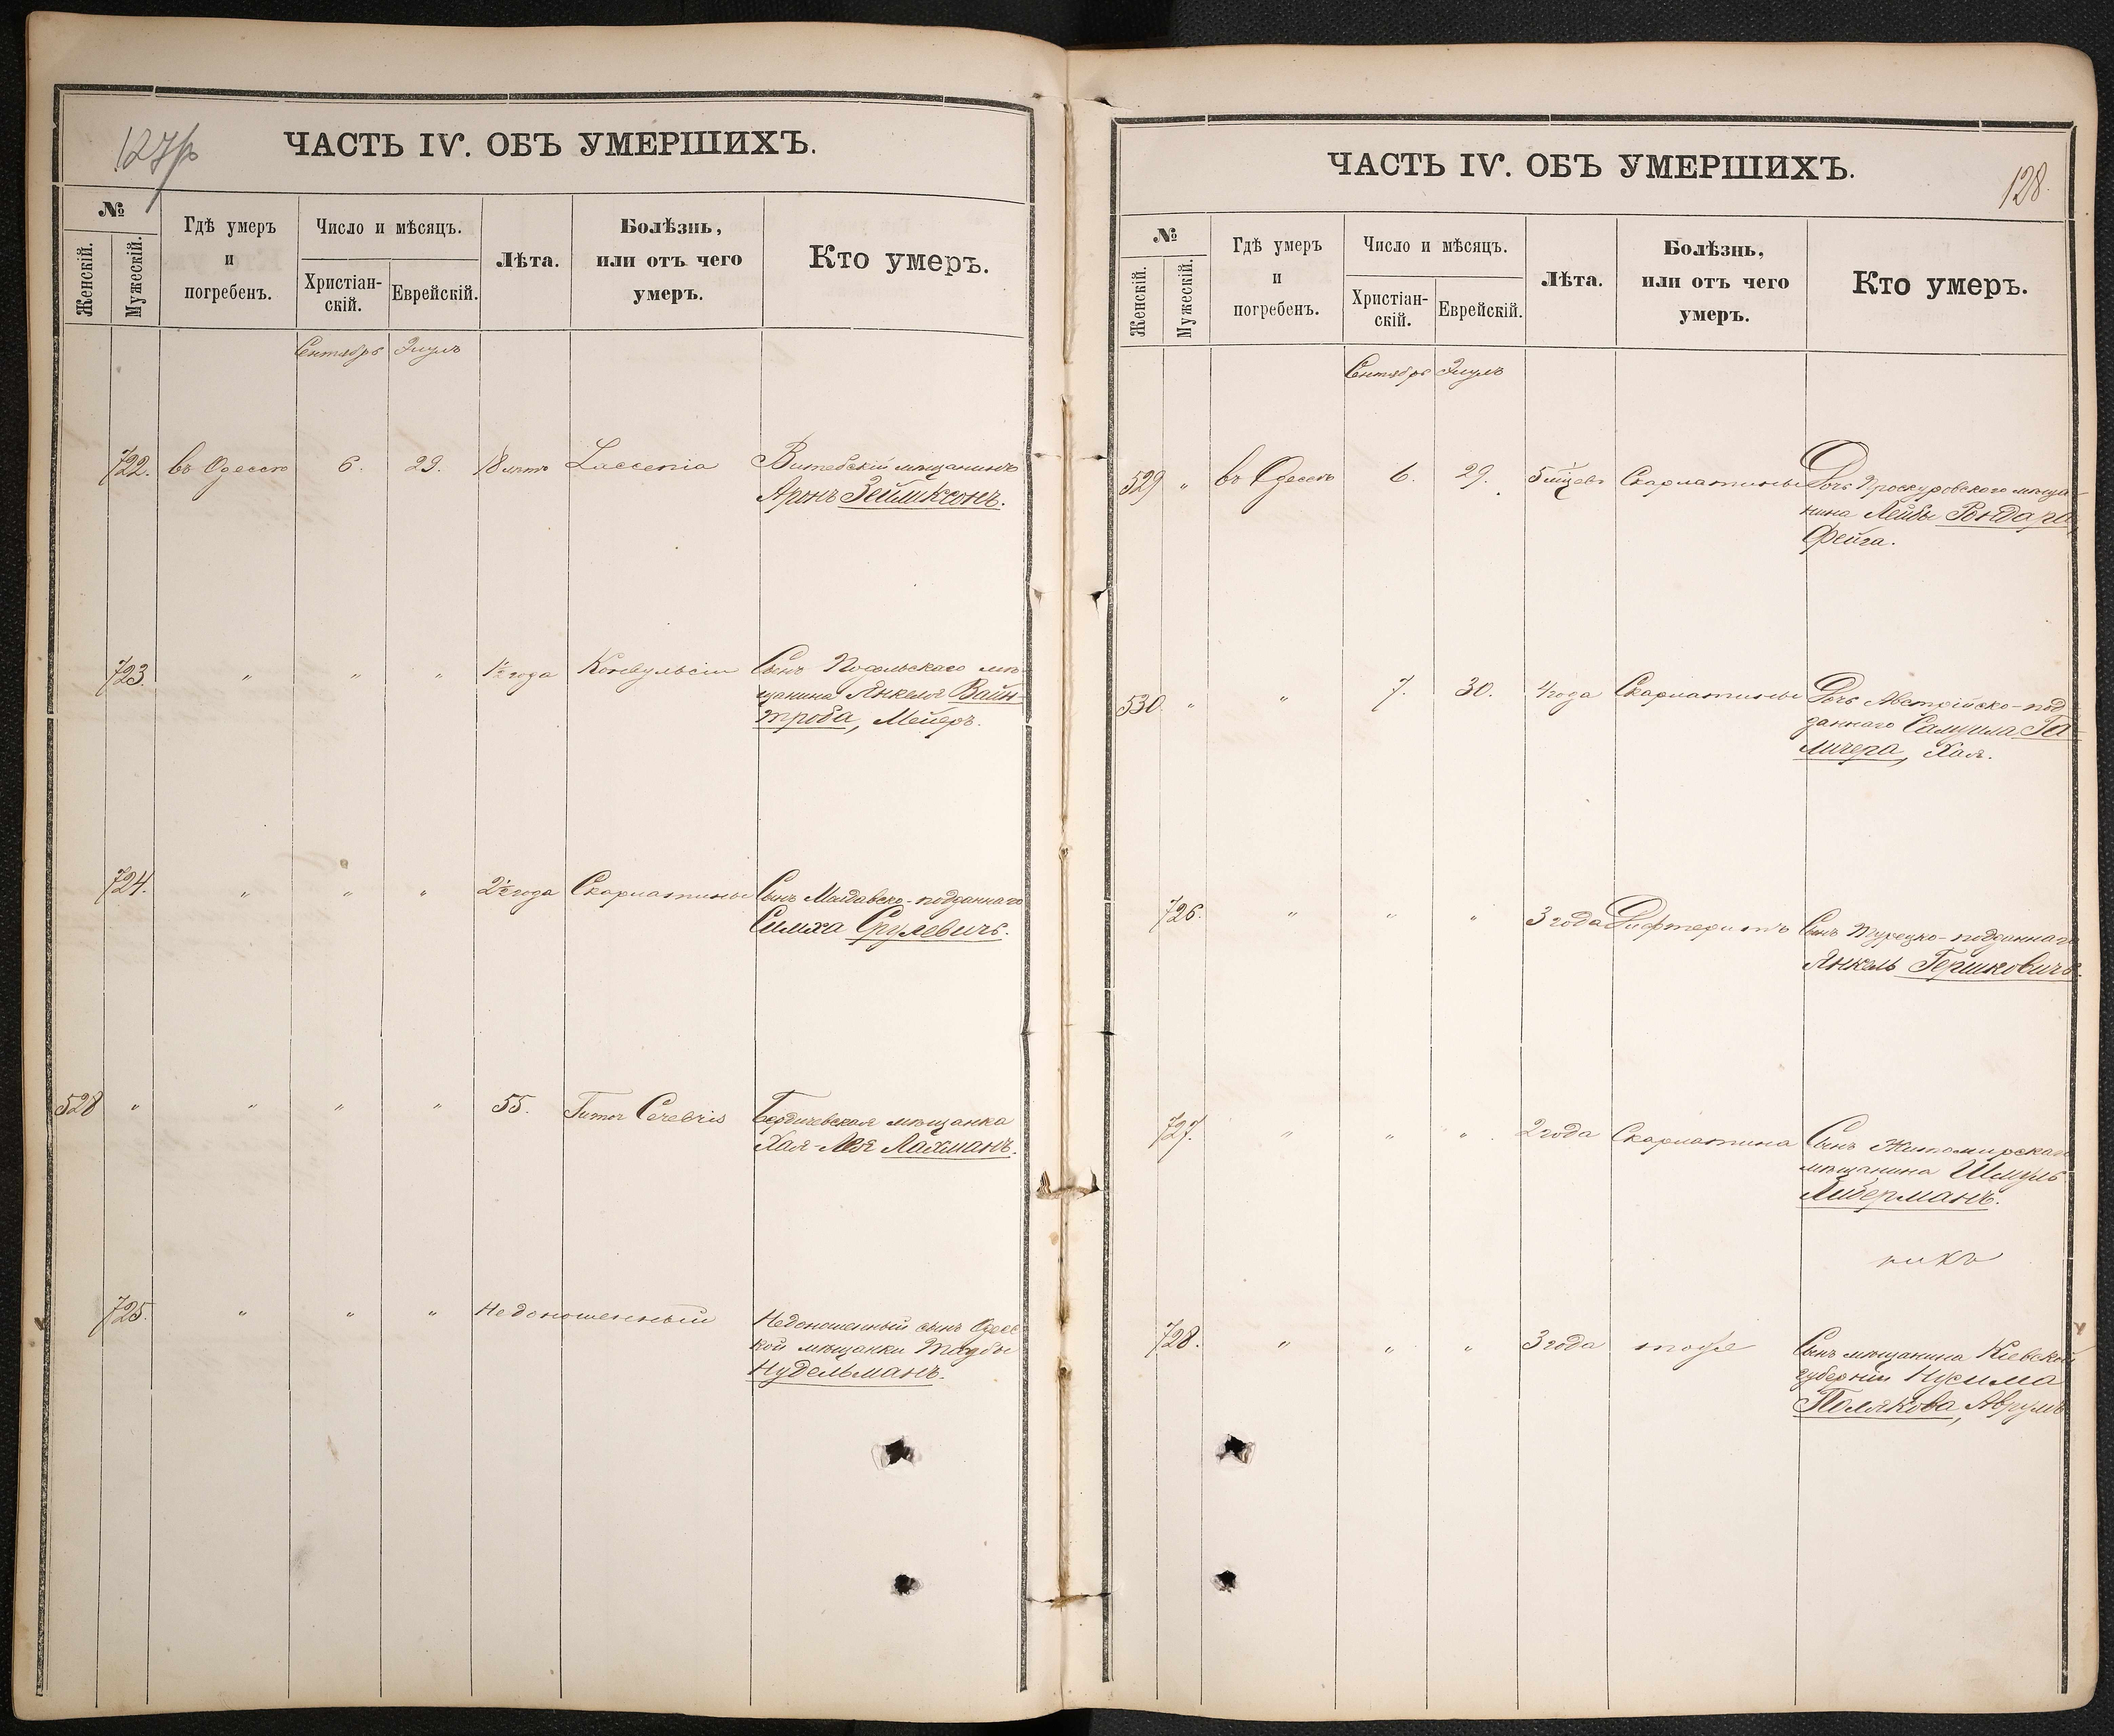 127
ЧАСТЬ IV. ОБЪ УМЕРШИХЪ.
№
Женскій.
Мужескій.
Гдѣ умеръ
и
погребенъ.
Число и мѣсяцъ.
Христіан-
скій.
Еврейскій.
Лѣта.
Болѣзнь,
или отъ чего
умеръ.
Кто умеръ.
Сентябрь Элулъ
722. въ Одессѣ 6. 29. 18 лѣтъ Витебскій мѣщанинъ
Аронъ Зейликсонъ.
723. " " " 1½ года Конвульсіи Сынъ Подольскаго мѣ-
щанина Янкеля Вайн-
троба, Мейеръ.
724. " " " 2½ года Скарлатины Сынъ Молдавско-подданнаго
Симха Срулевичъ.
528 " " " " 55. Tumor Cerebris Бердичевская мѣщанка
Хая-Лея Лахманъ.
725. " " " Недоношенный Недоношенный сынъ Одесс-
кой мѣщанки Таубы
Нудельманъ.
128.
ЧАСТЬ IV. ОБЪ УМЕРШИХЪ.
№
Женскій.
Мужескій.
Гдѣ умеръ
и
погребенъ.
Число и мѣсяцъ.
Христіан-
скій.
Еврейскій.
Лѣта.
Болѣзнь,
или отъ чего
умеръ.
Кто умеръ.
Сентябрь Элулъ
529 " въ Одессѣ 6. 29. 5 Скарлатины Дочь Проскуровскаго мѣща-
нина Лейбы Рондаря,
Фейга.
530. " " 7. 30. 4 года Скарлатины Дочь Австрійско-под
даннаго Самуила Га-
личера, Хая.
726. " " " 3 года Дифтеритъ Сынъ Турецко-подданнаго
Янкель Гершковичъ.
727. " " " 2 года Скарлатина Сынъ Житомирскаго
мѣщанина Шмуль
Либерманъ.
никъ
728. " " " 3 года тоже Сынъ мѣщанина Кіевской
губерніи Нусима
Полякова, Аврумъ